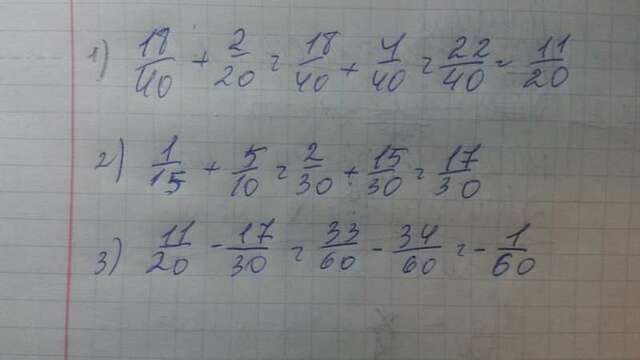 1) 18/40 + 2/20 = 18/40 + 4/40 = 22/40 = 11/20
2) 1/15 + 5/10 = 2/30 + 15/30 = 17/30
3) 11/20 - 17/30 = 33/60 - 34/60 = - 1/60